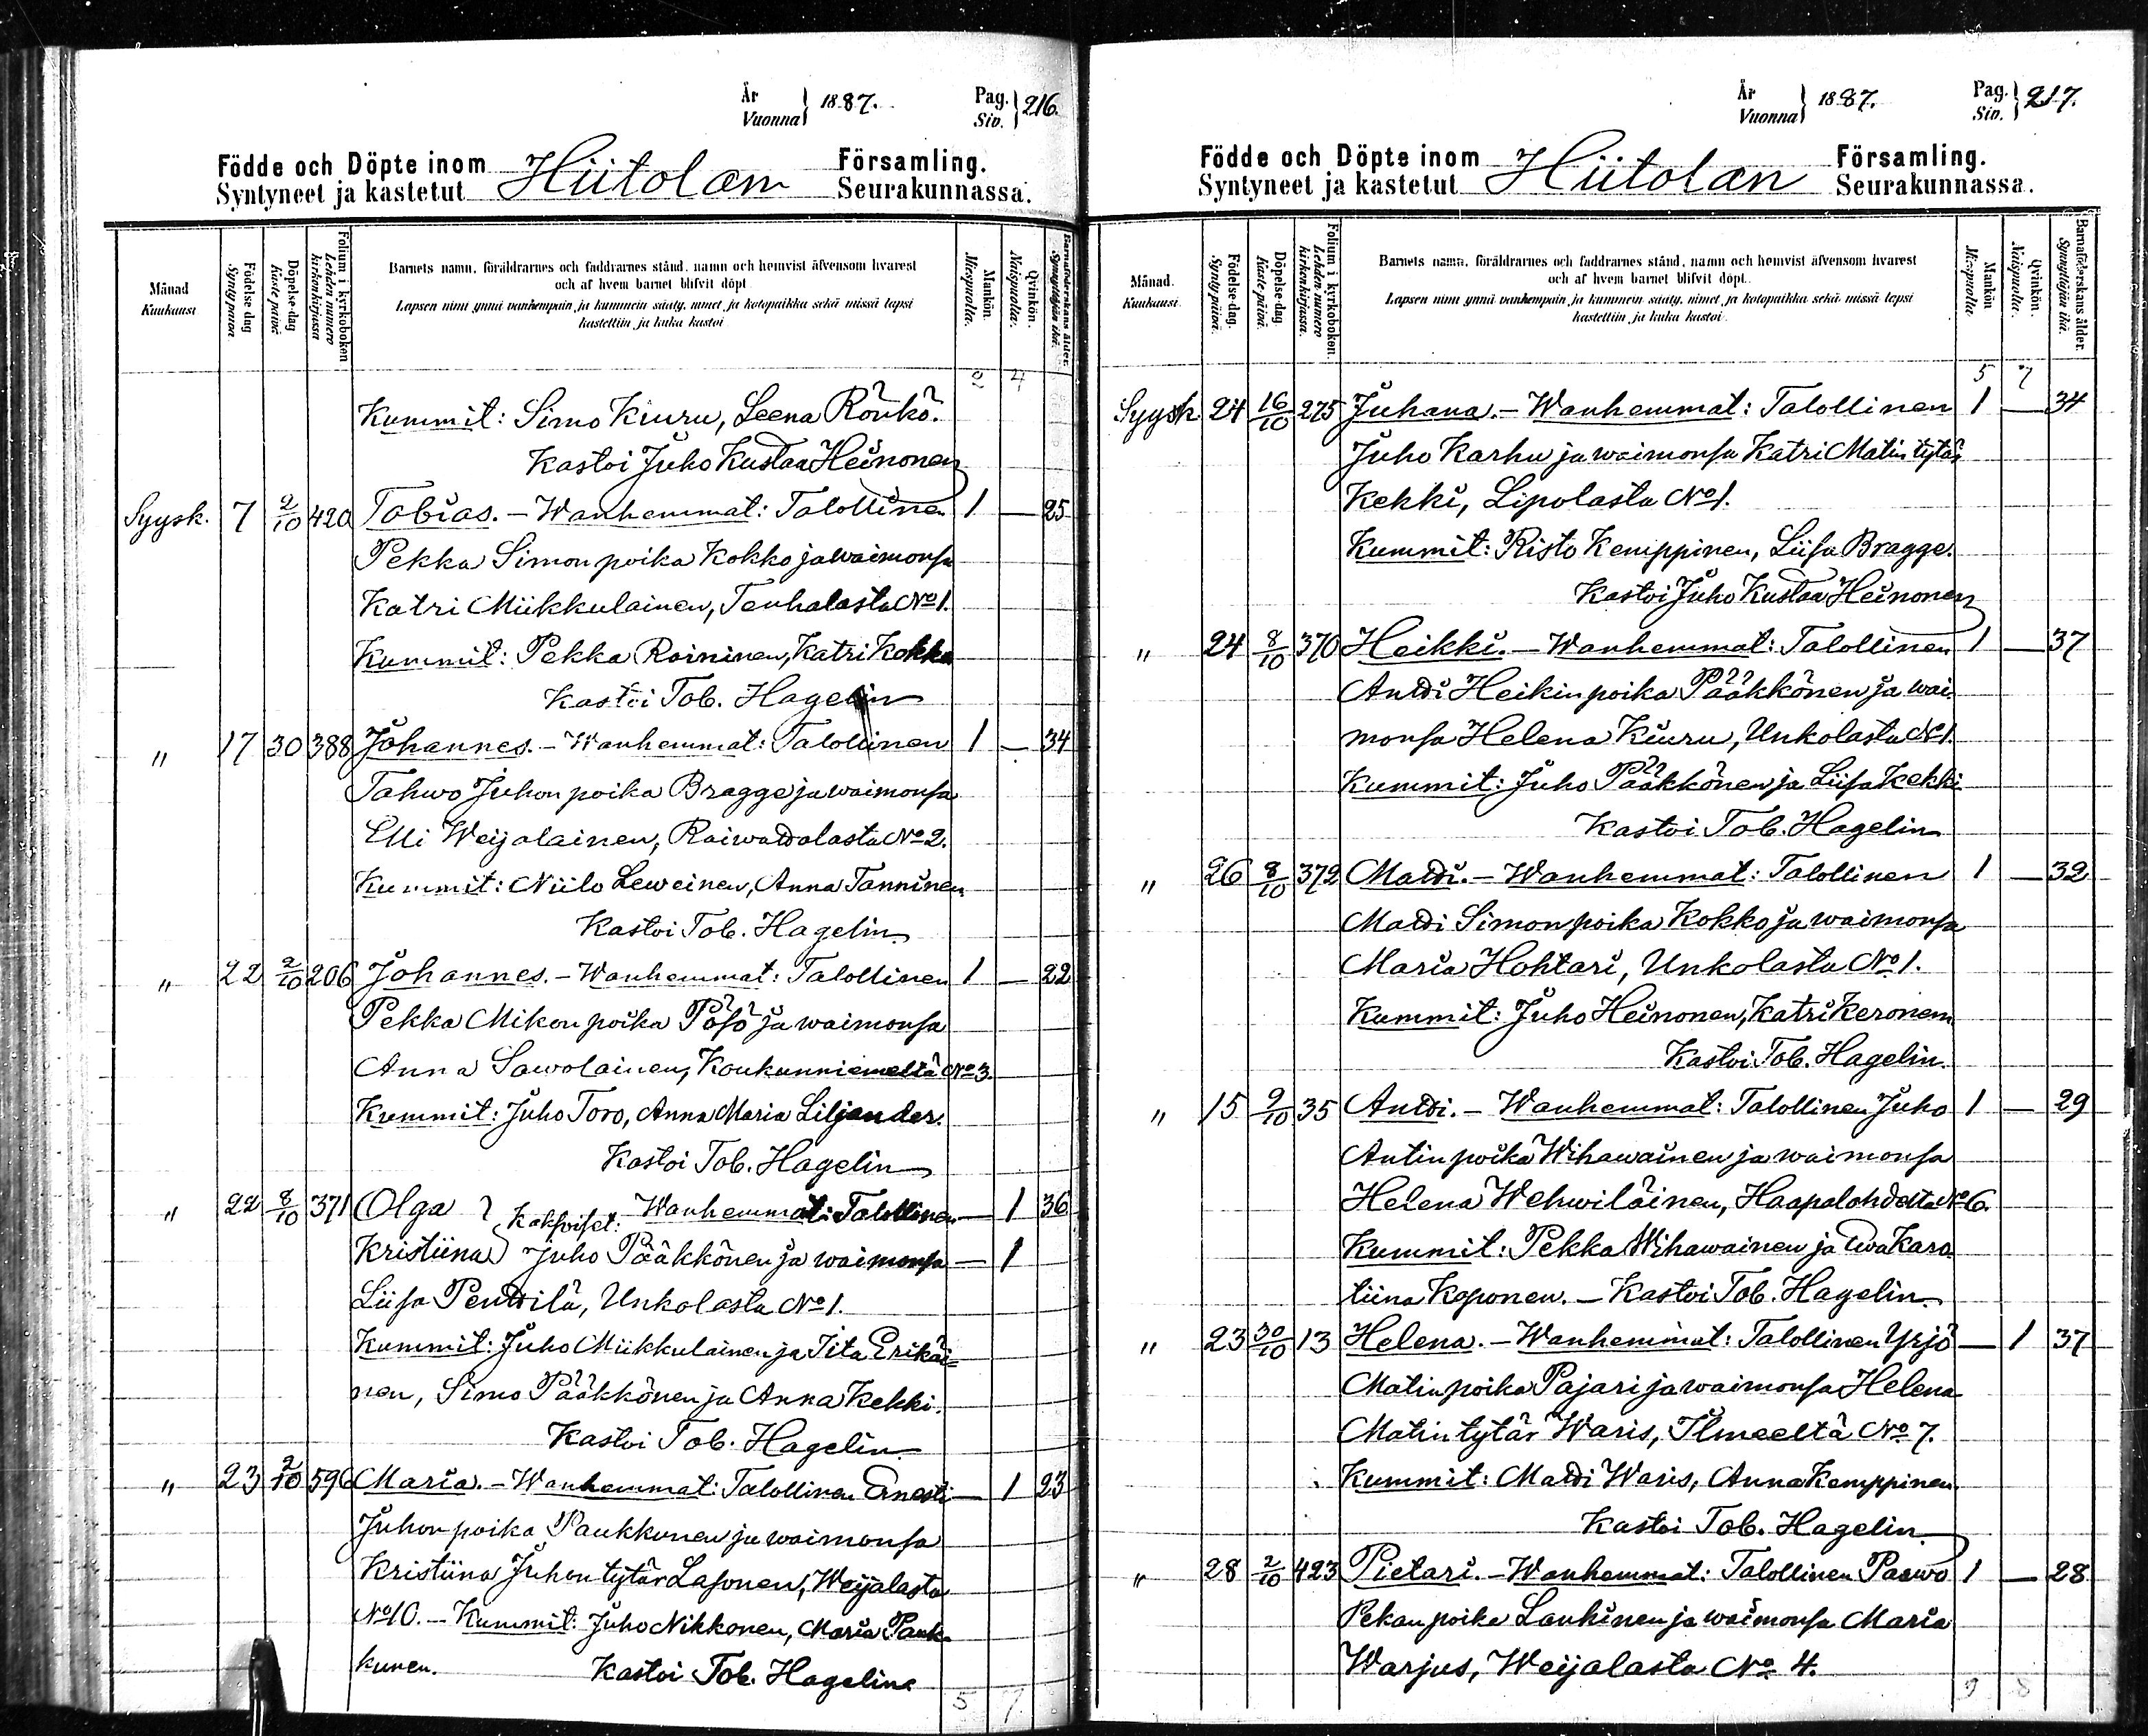 År
Vuonna } 1887.
Pag.
Siv. } 216.
Födde och Döpte inom
Syntyneet ja kastetut Hiitolan Församling.
Seurakunnassa.
Månad
Kuukausi
Födelse dag
Synty päivä
Döpelse-dag
Kaste päivä
Folium i kyrkoboken
Lehden numero kirkonkirjassa
Barnets namn, föräldrarnes och faddrarnes stånd, namn och hemvist äfvensom hvarest
och af hvem barnet blifvit döpt
Lapsen nimi ynnä vanhempain ja kummein sääty, nimet ja kotopaikka sekä missä lapsi
kastettiin ja kuka kastoi
Mankön.
Miespuolta.
Qvinkön.
Naispuolta.
Barnaföderskans ålder.
Synnyttäjän ikä.
2 4
Kummit: Simo Kiuru, Leena Rönkö.
Kastoi Juho Kustaa Heinonen
Syysk. 7 2/10 420 Tobias. – Wanhemmat: Talollinen 1 — 25
Pekka Simon poika Kokko ja waimonsa
Katri Miikkulainen, Tenhalasta No 1.
Kummit: Pekka Roininen, Katri Kokko
Kastoi Tob. Hagelin
" 17 30 388 Johannes. – Wanhemmat: Talollinen 1 — 34
Tahwo Juhon poika Bragge ja waimonsa
Elli Weijalainen, Raiwattalasta No 2.
Kummit: Niilo Leweinen, Anna Tanninen
Kastoi Tob. Hagelin
" 22 2/10 206 Johannes. – Wanhemmat: Talollinen 1 — 22
Pekka Mikon poika Pösö ja waimonsa
Anna Sawolainen, Koukunniemeltä No 3.
Kummit: Juho Toro, Anna Maria Liljander.
Kastoi Tob. Hagelin
" 22 8/10 371 Olga } Kaksoiset: Wanhemmat: Talollinen — 1 36
Kristiina } Juho Pääkkönen ja waimonsa — 1
Liisa Penttilä, Unkolasta No 1.
Kummit: Juho Miikkulainen ja Iita Erikäi=
nen, Simo Pääkkönen ja Anna Kekki.
Kastoi Tob. Hagelin
" 23 2/10 596 Maria. – Wanhemmat: Talollinen Ernesti — 1 23
Juhon poika Paukkunen ja waimonsa
Kristiina Juhon tytär Lasonen, Weijalasta
No 10. – Kummit: Juho Nikkonen, Maria Pauk-
kunen. Kastoi Tob. Hagelin
5 7
År
Vuonna } 1887.
Pag.
Siv. } 217.
Födde och Döpte inom
Syntyneet ja kastetut Hiitolan Församling.
Seurakunnassa.
Månad.
Kuukausi.
Födelse-dag.
Synty päivä.
Döpelse-dag
Kaste päivä.
Folium i kyrkoboken.
Lehden numero kirkonkirjassa.
Barnets namn, föräldrarnes och faddrarnes stånd, namn och hemvist äfvensom hvarest
och af hvem barnet blifvit döpt.
Lapsen nimi ynnä vanhempain ja kummein sääty, nimet ja kotopaikka sekä missä lapsi
kastettiin ja kuka kastoi.
Mankön
Miespuolta.
Qvinkön.
Naispuolta.
Barnaföderskans ålder.
Synnyttäjän ikä.
5 7
Syysk 24 16/10 275 Juhana. – Wanhemmat: Talollinen 1 — 34
Juho Karhu ja waimonsa Katri Matin tytär
Kekki, Lipolasta No 1.
Kummit: Risto Kemppinen, Liisa Bragge.
Kastoi Juho Kustaa Heinonen
" 24 8/10 370 Heikki. – Wanhemmat: Talollinen 1 — 37
Antti Heikin poika Pääkkönen ja wai-
monsa Helena Kiuru, Unkolasta No 1.
Kummit: Juho Pääkkönen ja Liisa Kekki
Kastoi Tob. Hagelin
" 26 8/10 372 Matti. – Wanhemmat: Talollinen 1 — 32
Matti Simon poika Kokko ja waimonsa
Maria Hohtari, Unkolasta No 1.
Kummit: Juho Heinonen, Katri Keronen
Kastoi Tob. Hagelin.
" 15 9/10 35 Antti. – Wanhemmat: Talollinen Juho 1 — 29
Antin poika Wihawainen ja waimonsa
Helena Wehwiläinen, Haapalahdelta No 6.
Kummit: Pekka Wihawainen ja Ewa Karo-
tiina Koponen. – Kastoi Tob. Hagelin
" 23 30/10 13 Helena. – Wanhemmat: Talollinen Yrjö — 1 37
Matin poika Pajari ja waimonsa Helena
Matin tytär Waris, Ilmeeltä No 7.
Kummit: Matti Waris, Anna Kemppinen
Kastoi Tob. Hagelin
" 28 2/10 423 Pietari. – Wanhemmat: Talollinen Paawo 1 — 28
Pekan poika Laukinen ja waimonsa Maria
Warjus, Weijalasta No 4.
9 8